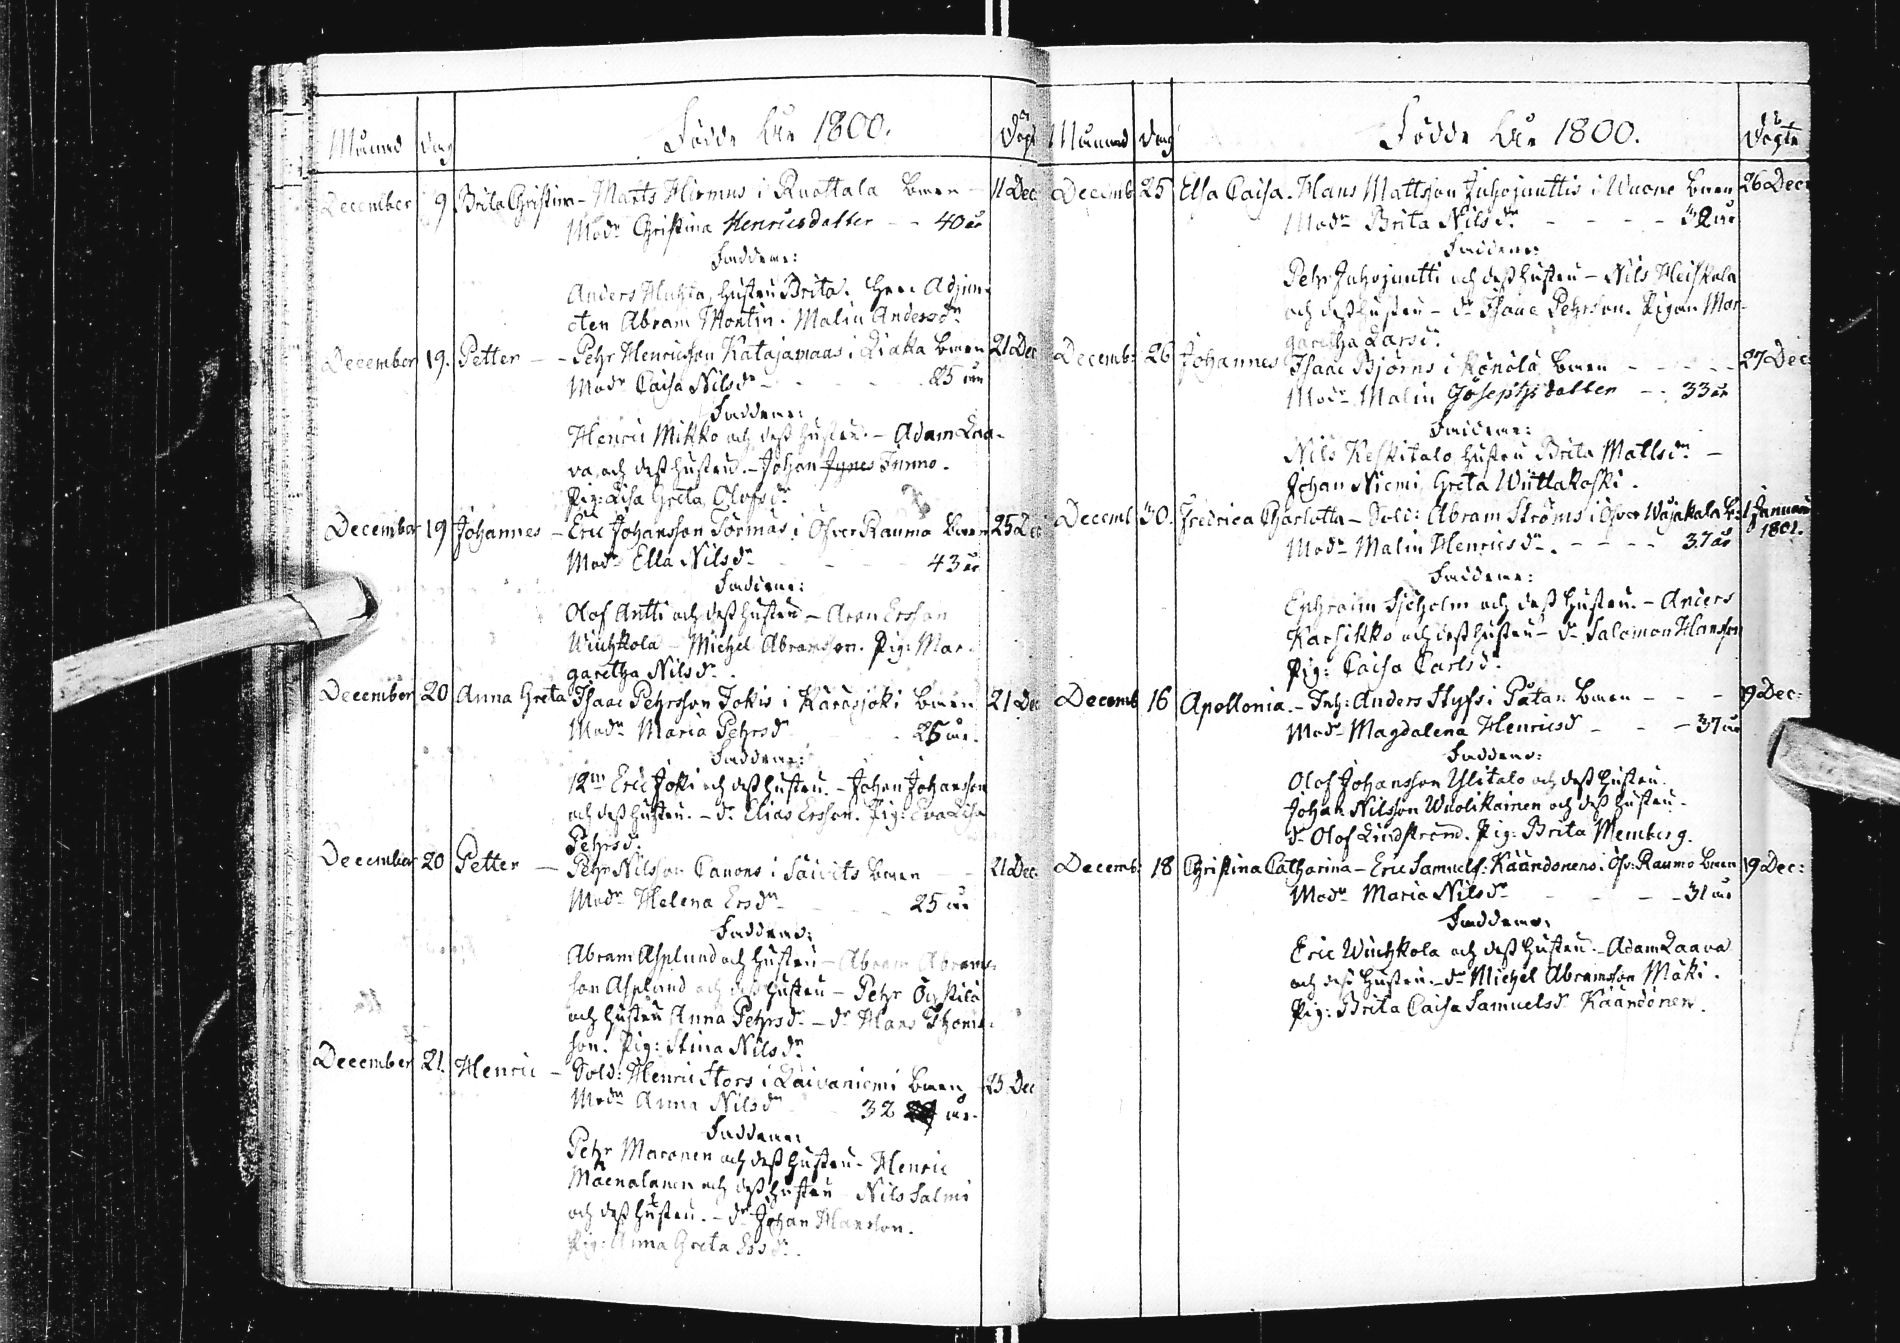 Månad Dag Födde År 1800. Döpt
December 9 Brita Christina – Matts Hirmus i Ruottala Barn – 11 Dec
Modr Christina Henricsdotter – – 40 år
Faddrar:
Anders Huhta, hustru Brita. Herr Adjun-
cten Abram Montin. Malin Andersdr
December 19. Petter – – Pehr Henricsson Katajamaas i Liakka Barn 21 Dec
Modr Caisa Nilsdr – – – 25 år
Faddrar:
Henric Mikko och dess hustru. – Adam Laa-
va och dess hustru. – Johan Junes Inmo.
Pig: Lisa Greta Olofsdr
December 19 Johannes – Eric Johansson Törmäs i Öfver Raumo Barn 25 Dec
Modr Ella Nilsdr – – – 43 år
Faddrar:
Olof Antti och dess hustru – Aron Ersson
Wiuhkola – Michel Abramsson. Pig: Mar-
garetha Nilsdr.
December 20 Anna Greta Isaac Pehrsson Jokis i Karasjoki Barn 21 Dec
Modr Maria Pehrsd – 26 år.
Faddrar:
12mn Eric Joki och dess hustru. – Johan Johansson
och dess hustru. – dr Elias Ersson. Pig: Eva Lisa
Pehrsd.
December 20 Petter – Pehr Nilsson Canons i Säivits Barn – – 21 Dec:
Modr Helena Ersdr – – – 25 år
Faddrar:
Abram Asplund och hustru – Abram Abrams-
son Asplund och dess hustru – Pehr
och hustru Anna Pehrsdr – dr Hans Thoms-
son. Pig: Stina Nilsdr
December 21. Henric – Sold: Henric Stors i Laivaniemi Barn 25 Dec
Modr Anna Nilsdr 32 år.
Faddrar:
Pehr Maronen och dess hustru – Henric
Mäenalanen och dess hustru Nils Salmi
och dess hustru. – dr Johan Hansson.
Pig: Anna Greta Ersdr.
Månad Dag Födde År 1800. Döpte
Decemb: 25 Elsa Caisa. Hans Mattsson Juhojunttis i Wuono Barn 26 Dec:
Modr Brita Nilsdr – – – – 32 år
Faddrar:
Pehr Juhojuntti och dess hustru – Nils Heiskala
och dess hustru – dr Isaac Pehrsson. Pigan Mar-
garetha Larsd.
Decemb: 26 Johannes Isaac Björns i Könölä Barn – – – – 27 Dec:
Modr Malin Josephsdotter – – 33 år
Faddrar:
Nils Keskitalo hustru Brita Mattsdr –
Johan Niemi, Greta Wuttakoski.
Decemb: 30. Fredrica Charlotta – Sold: Abram Ströms i Öfver Wojakala B: 1 Januari
1801.
Modr Malin Henricsdr. – – – – 37 år
Faddrar:
Ephraim Sjöholm och dess hustru. – Anders
Karhikko och dess hustru – dr Salomon Hansson
Pig: Caisa Carlsd.
Decemb 16 Apollonia. – Inh: Anders Styfs i Påtan Barn – – – 19 Dec:
Modr Magdalena Henricsd – – – 37 år
Faddrar:
Olof Johansson Ylitalo och dess hustru.
Johan Nilsson Wuolikainen och dess hustru –
dr Olof Lindström. Pig: Brita Memberg.
Decemb: 18 Christina Catharina – Eric Samuels: Käändönens i Öfv: Raumo Barn 19 Dec:
Modr Maria Nilsdr – – – 31 år
Faddrar:
Eric Wiuhkola och dess hustru – Adam Laava
och dess hustru. – dr Michel Abramsson Mäki.
Pig: Brita Caisa Samuelsd Käändönen.